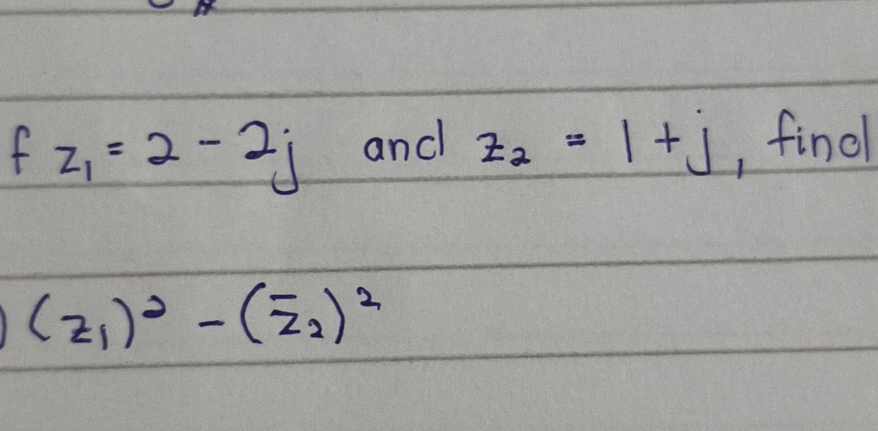 f z₁ = 2 - 2j and z₂ = 1 + j, find
) (z₁)² - (z̄₂)²